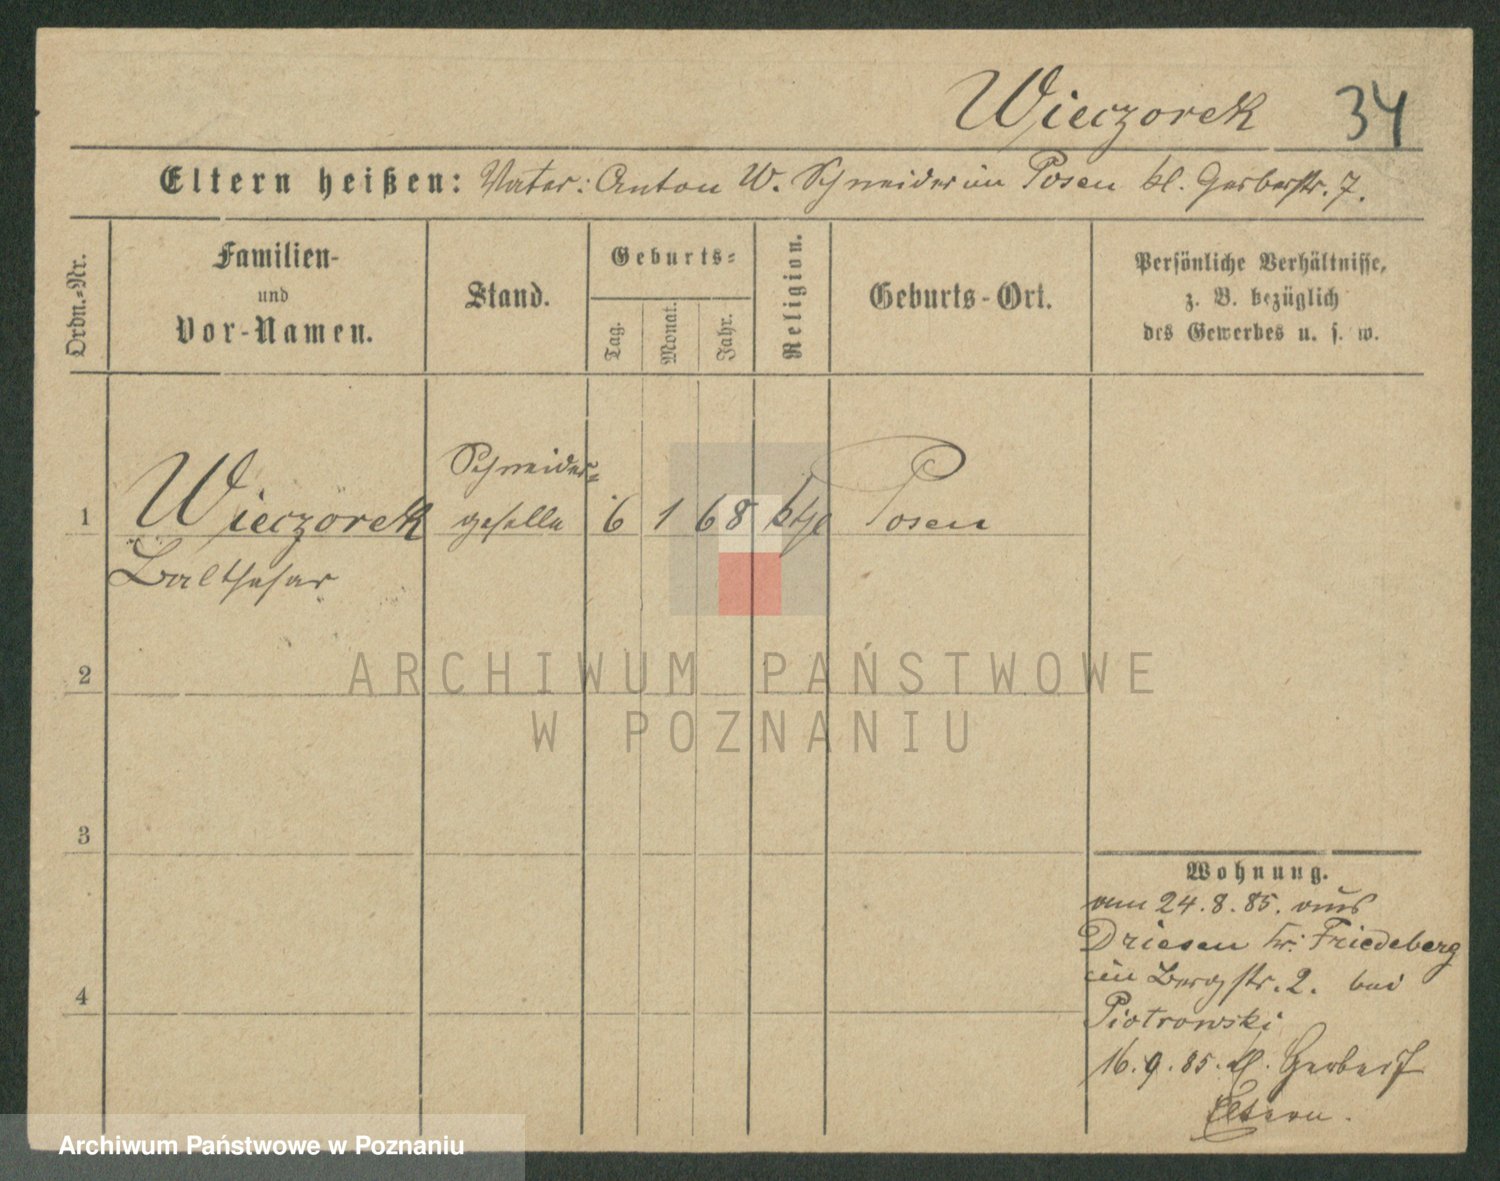 Wieczorek 34
Eltern heißen: Vater: Anton W. Schneider in Posen kl. Gerberstr. 7.
Ordn.=Nr.
Familien-
und
Vor-Namen.
Stand.
Geburts=
Tag.
Monat.
Jahr.
Religion.
Geburts-Ort.
Persönliche Verhältnisse,
z. B. bezüglich
des Gewerbes u. s. w.
Schneider=
1 Wieczorek geselle 6 1 68 kth Posen
Balthasar
2
ARCHIWUM PAŃSTWOWE
W POZNANIU
3
Wohnung.
am 24.8.85. aus
Driesen Kr. Friedeberg
in Bergstr. 2. bei
4
Piotrowski
16.9.85. kl. Gerberst
Eltern.
Archiwum Państwowe w Poznaniu